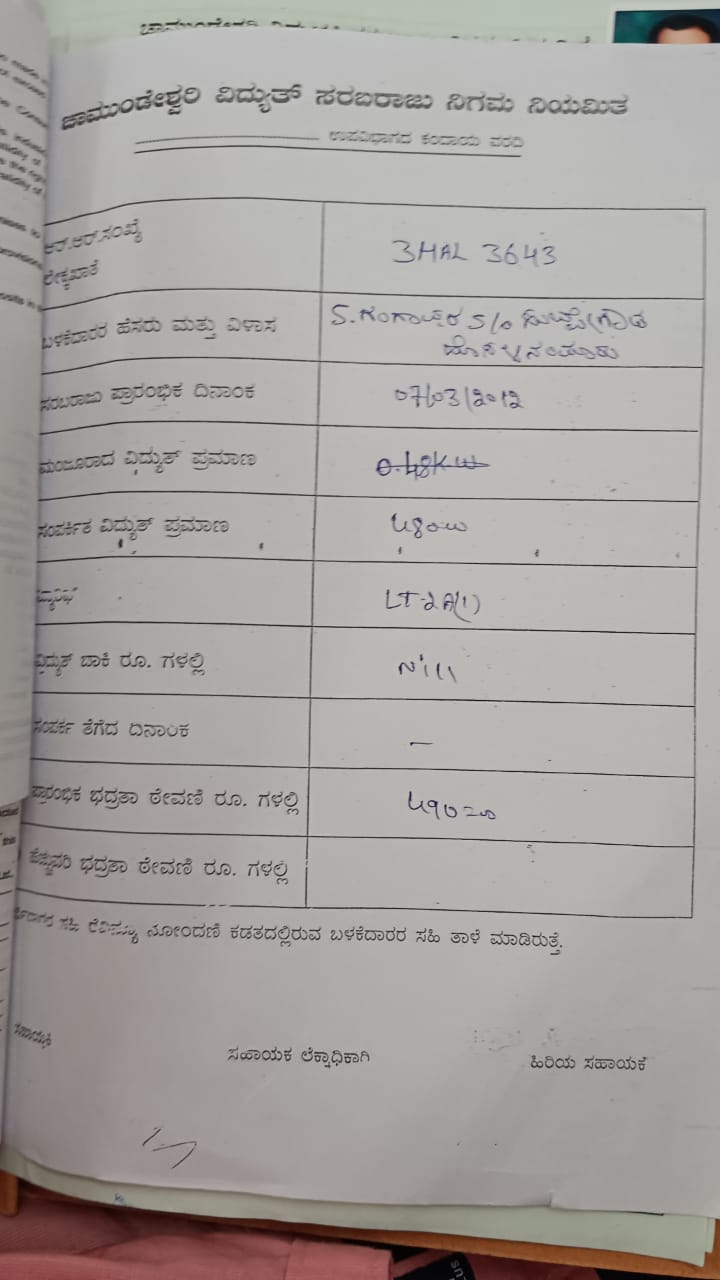 ಚಾಮುಂಡೇಶ್ವರಿ ವಿದ್ಯುತ್ ಸರಬರಾಜು ನಿಗಮ ನಿಯಮಿತ
ಉಪವಿಭಾಗದ ಕಂದಾಯ ವರದಿ
ಆರ್.ಆರ್.ಸಂಖ್ಯೆ
ಲೆಕ್ಕಖಾತೆ
3HAL 3643
ಬಳಕೆದಾರರ ಹೆಸರು ಮತ್ತು ವಿಳಾಸ
S. ಗಂಗಾಧರ S/o
ಸರಬರಾಜು ಪ್ರಾರಂಭಿಕ ದಿನಾಂಕ
07/03/2012
ಮಂಜೂರಾದ ವಿದ್ಯುತ್ ಪ್ರಮಾಣ
0.48KW
ಸಂಪರ್ಕಿತ ವಿದ್ಯುತ್ ಪ್ರಮಾಣ
480W
LT-2A(1)
ವಿದ್ಯುತ್ ಬಾಕಿ ರೂ. ಗಳಲ್ಲಿ
Nill
ಸಂಪರ್ಕ ತೆಗೆದ ದಿನಾಂಕ
—
ಪ್ರಾರಂಭಿಕ ಭದ್ರತಾ ಠೇವಣಿ ರೂ. ಗಳಲ್ಲಿ
490=00
ಹೆಚ್ಚುವರಿ ಭದ್ರತಾ ಠೇವಣಿ ರೂ. ಗಳಲ್ಲಿ
ಸಹಿ ರೆವಿನ್ಯೂ ನೋಂದಣಿ ಕಡತದಲ್ಲಿರುವ ಬಳಕೆದಾರರ ಸಹಿ ತಾಳೆ ಮಾಡಿರುತ್ತೆ.
ಸಹಾಯಕ ಲೆಕ್ಕಾಧಿಕಾಗಿ
ಹಿರಿಯ ಸಹಾಯಕ